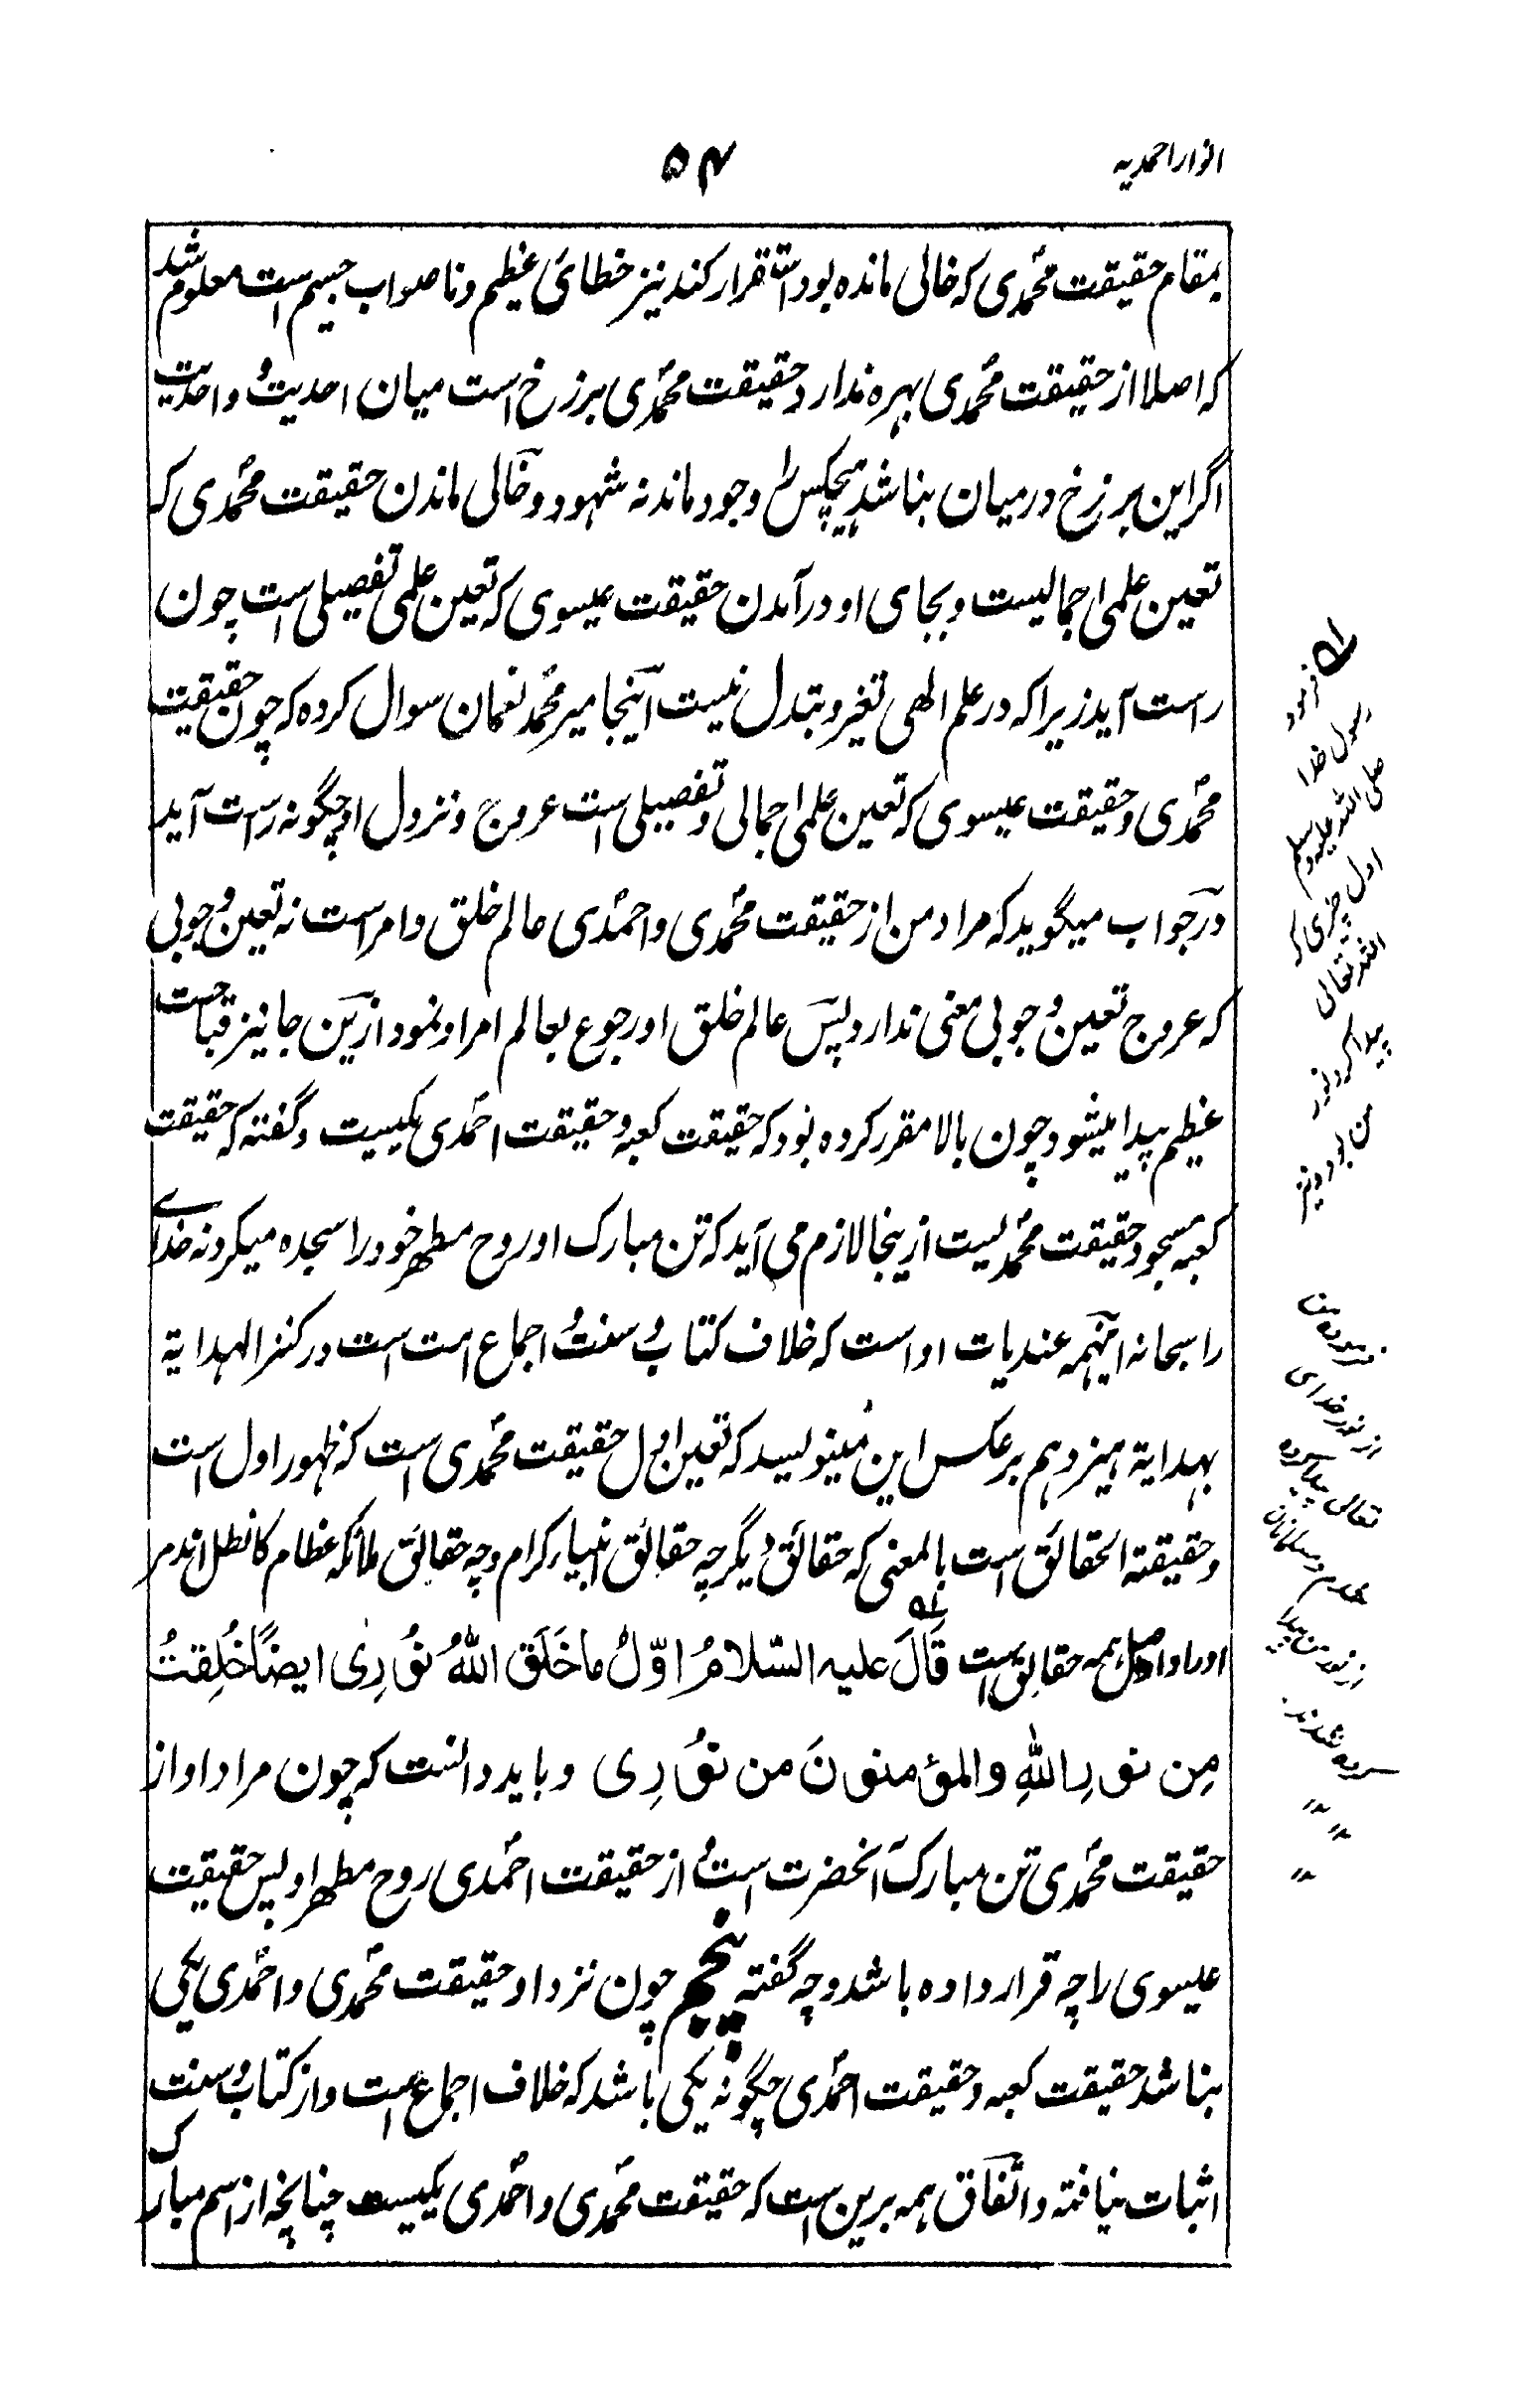 انوار احمدیه
۵۴
بمقام حقیقت محمّدی که خالی مانده بود استقرار کند نیز خطائ عظیم و ناصواب جسیم است معلوم شد
که اصلا از حقیقت محمّدی بهره ندارد حقیقت محمّدی برزخ است میان احدیت و واحدیت
اگر این برزخ درمیان نباشد هیچکس را وجود ماند نه شهود و خالی ماندن حقیقت محمّدی که
تعین علمی اجمالیست و بجای او در آمدن حقیقت عیسوی که تعین علمی تفصیلی است چون
راست آید زیرا که در علم الهی تغیر و تبدل نیست آینجا میر محمّد نعمان سوال کرده که چون حقیقت
محمّدی و حقیقت عیسوی که تعین علمی اجمالی و تفصیلی است عروج و نزول او چگونه راست آید
در جواب میگوید که مراد من از حقیقت محمّدی و احمدی عالم خلق و امر است نه تعین وجوبی
که عروج تعین وجوبی معنی ندارد پس عالم خلق او رجوع بعالم امر او نمود ازین جا نیز قباحت
عظیم پیدا میشود چون بالا مقرر کرده بود که حقیقت کعبه و حقیقت احمدی یکیست و گفته که حقیقت
کعبه مسجود حقیقت محمّدیست ازینجا لازم می آید که تن مبارک او روح مطهر خود را سجده میکرد نه خدای
را سبحانه اینهمه عندیات او است که خلاف کتاب و سنت و اجماع امت است در کنز الهدایة
بهدایة هیزدهم برعکس این مینویسید که تعین اول حقیقت محمّدی است که ظهور اول است
و حقیقة الحقائق است بالمعنی که حقائق دیگر چه حقائق انبیاء کرام و چه حقائق ملائکه عظام کالظل اند مر
او را و اصل همه حقائق است قَالَ علیه السّلامُ اوّلُ ما خَلَق اللهُ نُورِی ایضًا خُلِقتُ
مِن نورِ اللهِ والمؤمنونَ من نُورِی و باید دانست که چون مراد او از
حقیقت محمّدی تن مبارک آنحضرت است و از حقیقت احمدی روح مطهر او پس حقیقت
عیسوی را چه قرار داده باشد و چه گفته پنجم چون نزد او حقیقت محمّدی و احمدی یکی
نباشد حقیقت کعبه و حقیقت احمدی چگونه یکی باشد که خلاف اجماع است و از کتاب و سنت
اثبات نیافته و اتفاق همه برین است که حقیقت محمّدی و احمدی یکیست چنانچه از اسم مبارک
فرمود
رسول خدا
صلی الله علیه وسلم
اول چیزی که
الله تعالی
پیدا کرد نور
من بود و نیز
از نور خدای
تعالی پیدا کرده
از نور من پیدا
شدند